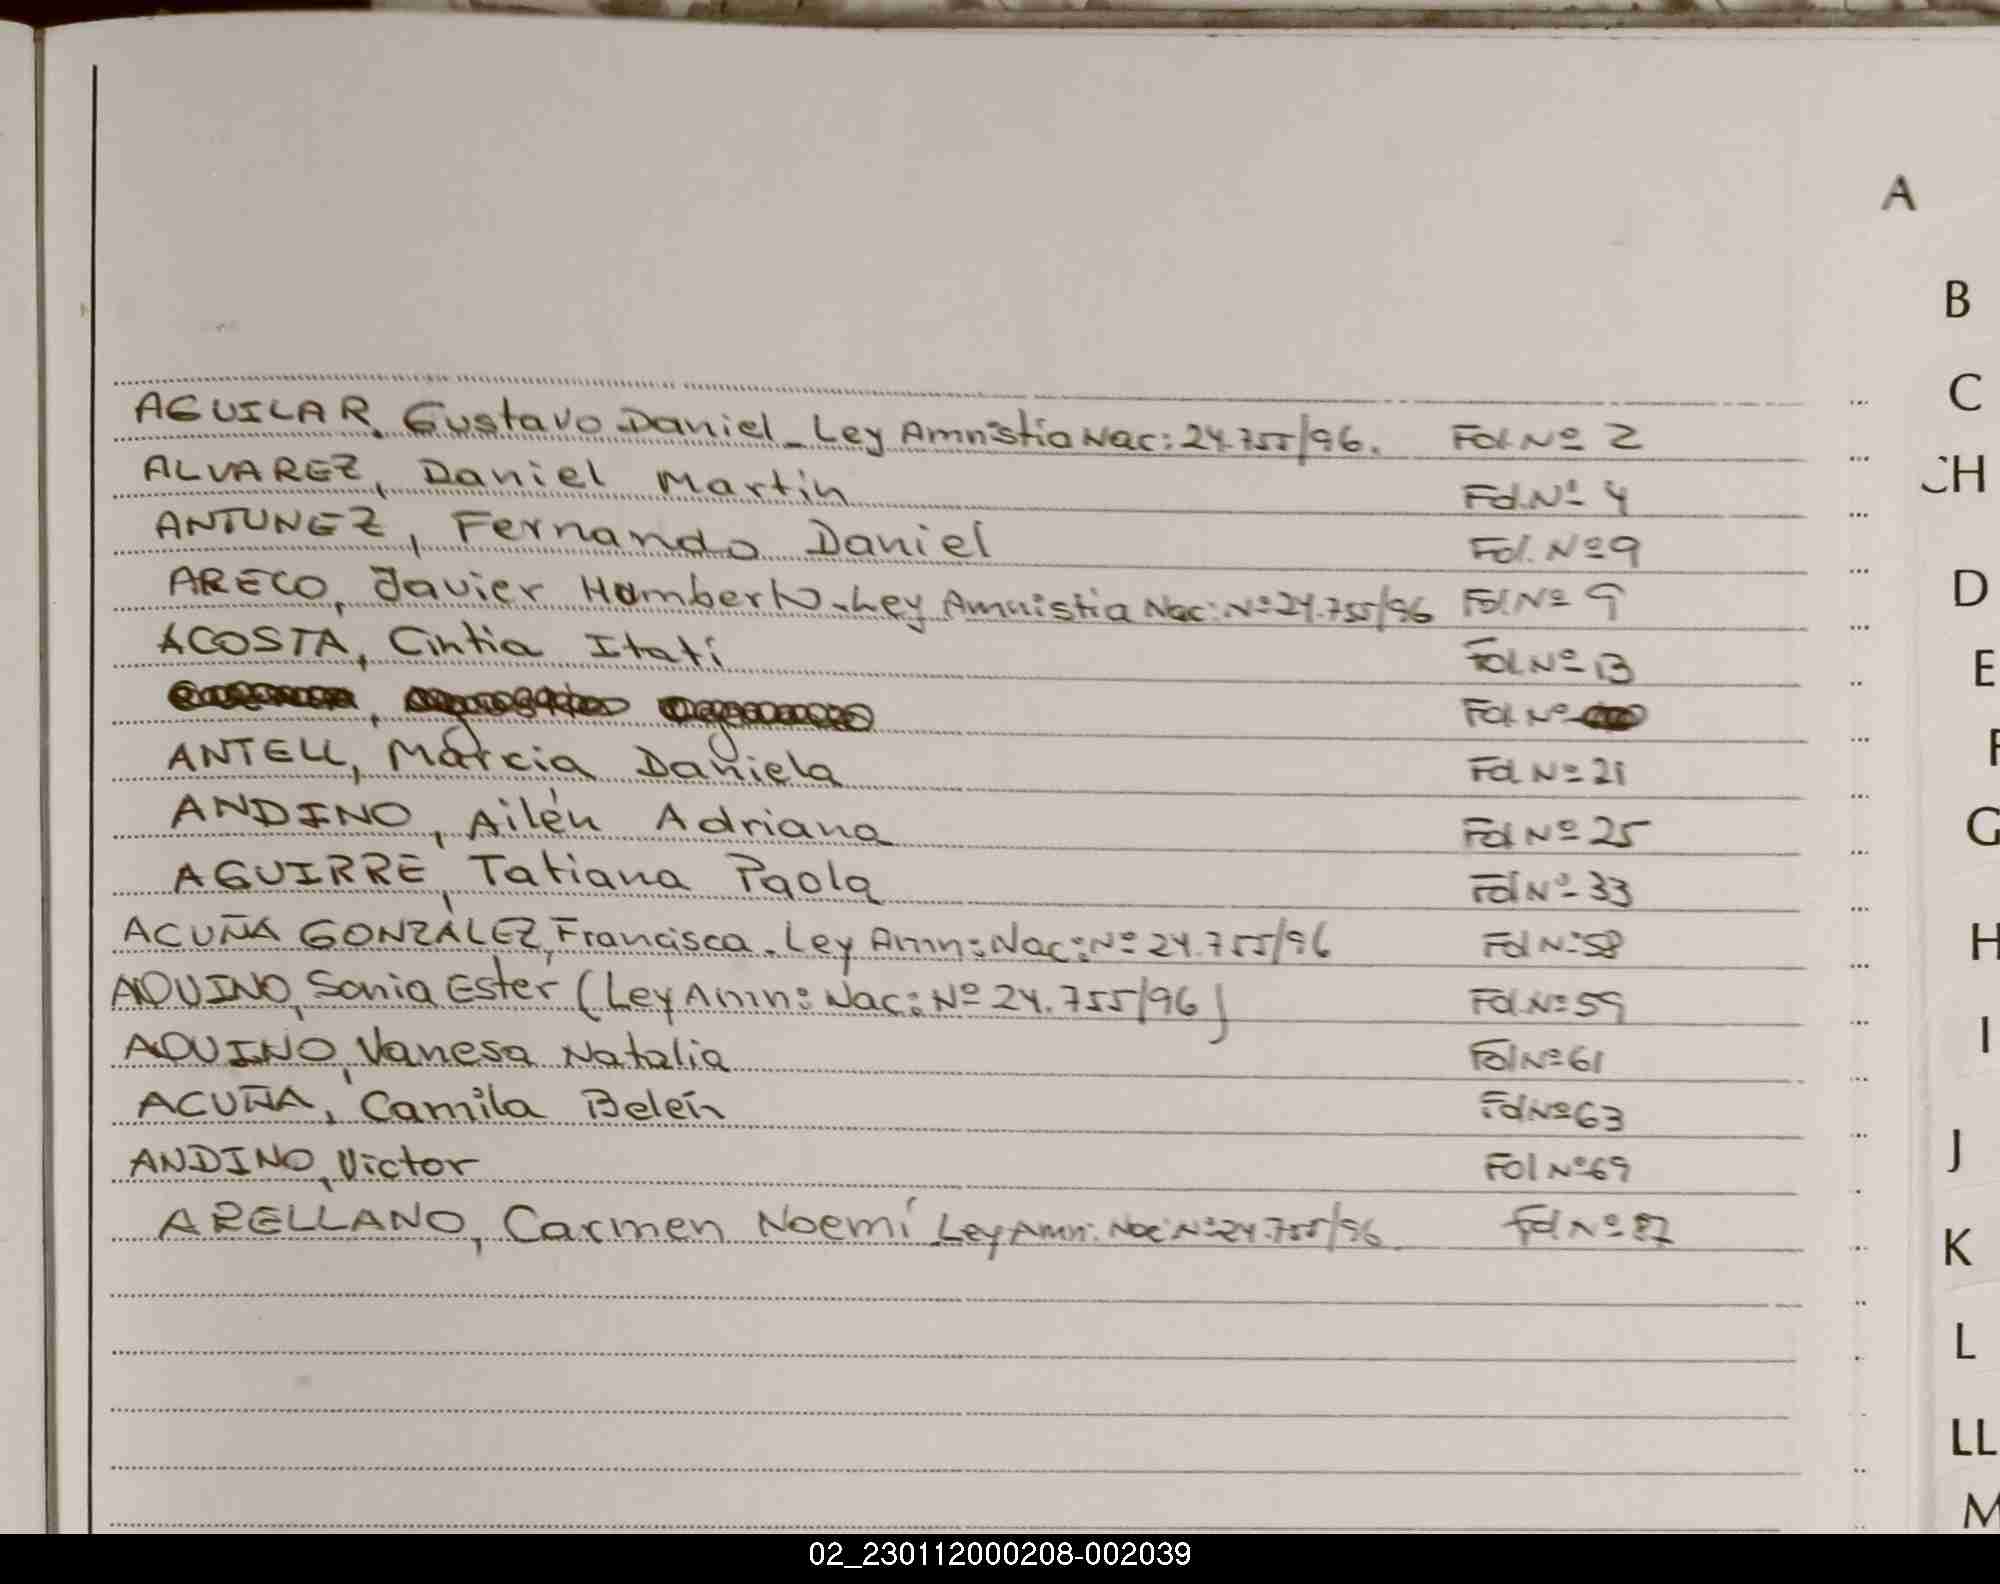 A
B
C
CH
D
E
F
G
H
I
J
K
L
LL
M
AGUILAR, Gustavo Daniel - Ley Amnistia Nac: 24.755/96. Fol. Nº 2
ALVAREZ, Daniel Martín Fol. Nº 4
ANTUNEZ, Fernando Daniel Fol. Nº 9
ARECO, Javier Humberto - Ley Amnistia Nac: Nº 24.755/96 Fol. Nº 9
ACOSTA, Cintia Itatí Fol Nº 13
Fol Nº
ANTELL, Marcia Daniela Fol Nº 21
ANDINO, Ailén Adriana Fol Nº 25
AGUIRRE, Tatiana Paola Fol Nº 33
ACUÑA GONZÁLEZ, Francisca. Ley Amn: Nac: Nº 24.755/96 Fol Nº 58
AQUINO, Sonia Ester (Ley Amn: Nac: Nº 24.755/96) Fol. Nº 59
AQUINO, Vanesa Natalia Fol Nº 61
ACUÑA, Camila Belén Fol Nº 63
ANDINO, Victor Fol Nº 69
ARELLANO, Carmen Noemí Ley Amn: Nac Nº 24.755/96. Fol Nº
02_230112000208-002039